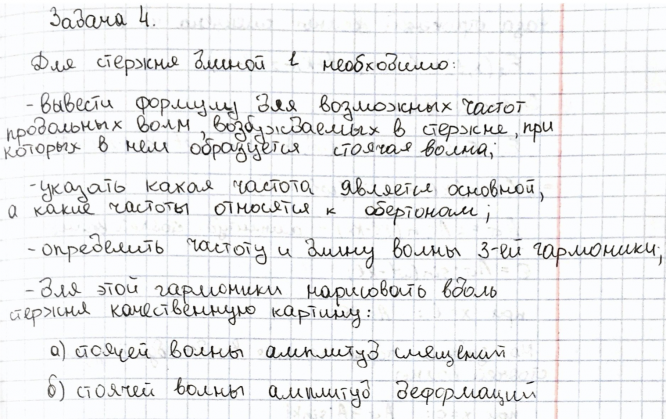 Задача 4.
Для стержня длиной l необходимо:
- вывести формулу для возможных частот
продольных волн, возбуждаемых в стержне, при
которых в нем образуется стоячая волна;
- указать какая частота является основной,
а какие частоты относятся к обертонам;
- определить частоту и длину волны 3-ей гармоники;
- Для этой гармоники нарисовать вдоль
стержня качественную картину:
а) стоячей волны амплитуд смещений
б) стоячей волны амплитуд деформаций